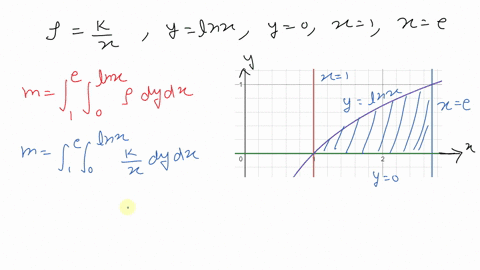 ρ = K/x , y = lnx, y = 0, x = 1, x = e
m = ∫₁ᵉ ∫₀^lnx ρ dy dx
m = ∫₁ᵉ ∫₀^lnx K/x dy dx
y
x = 1
1
y = lnx
x = e
0 1 2
x
y = 0